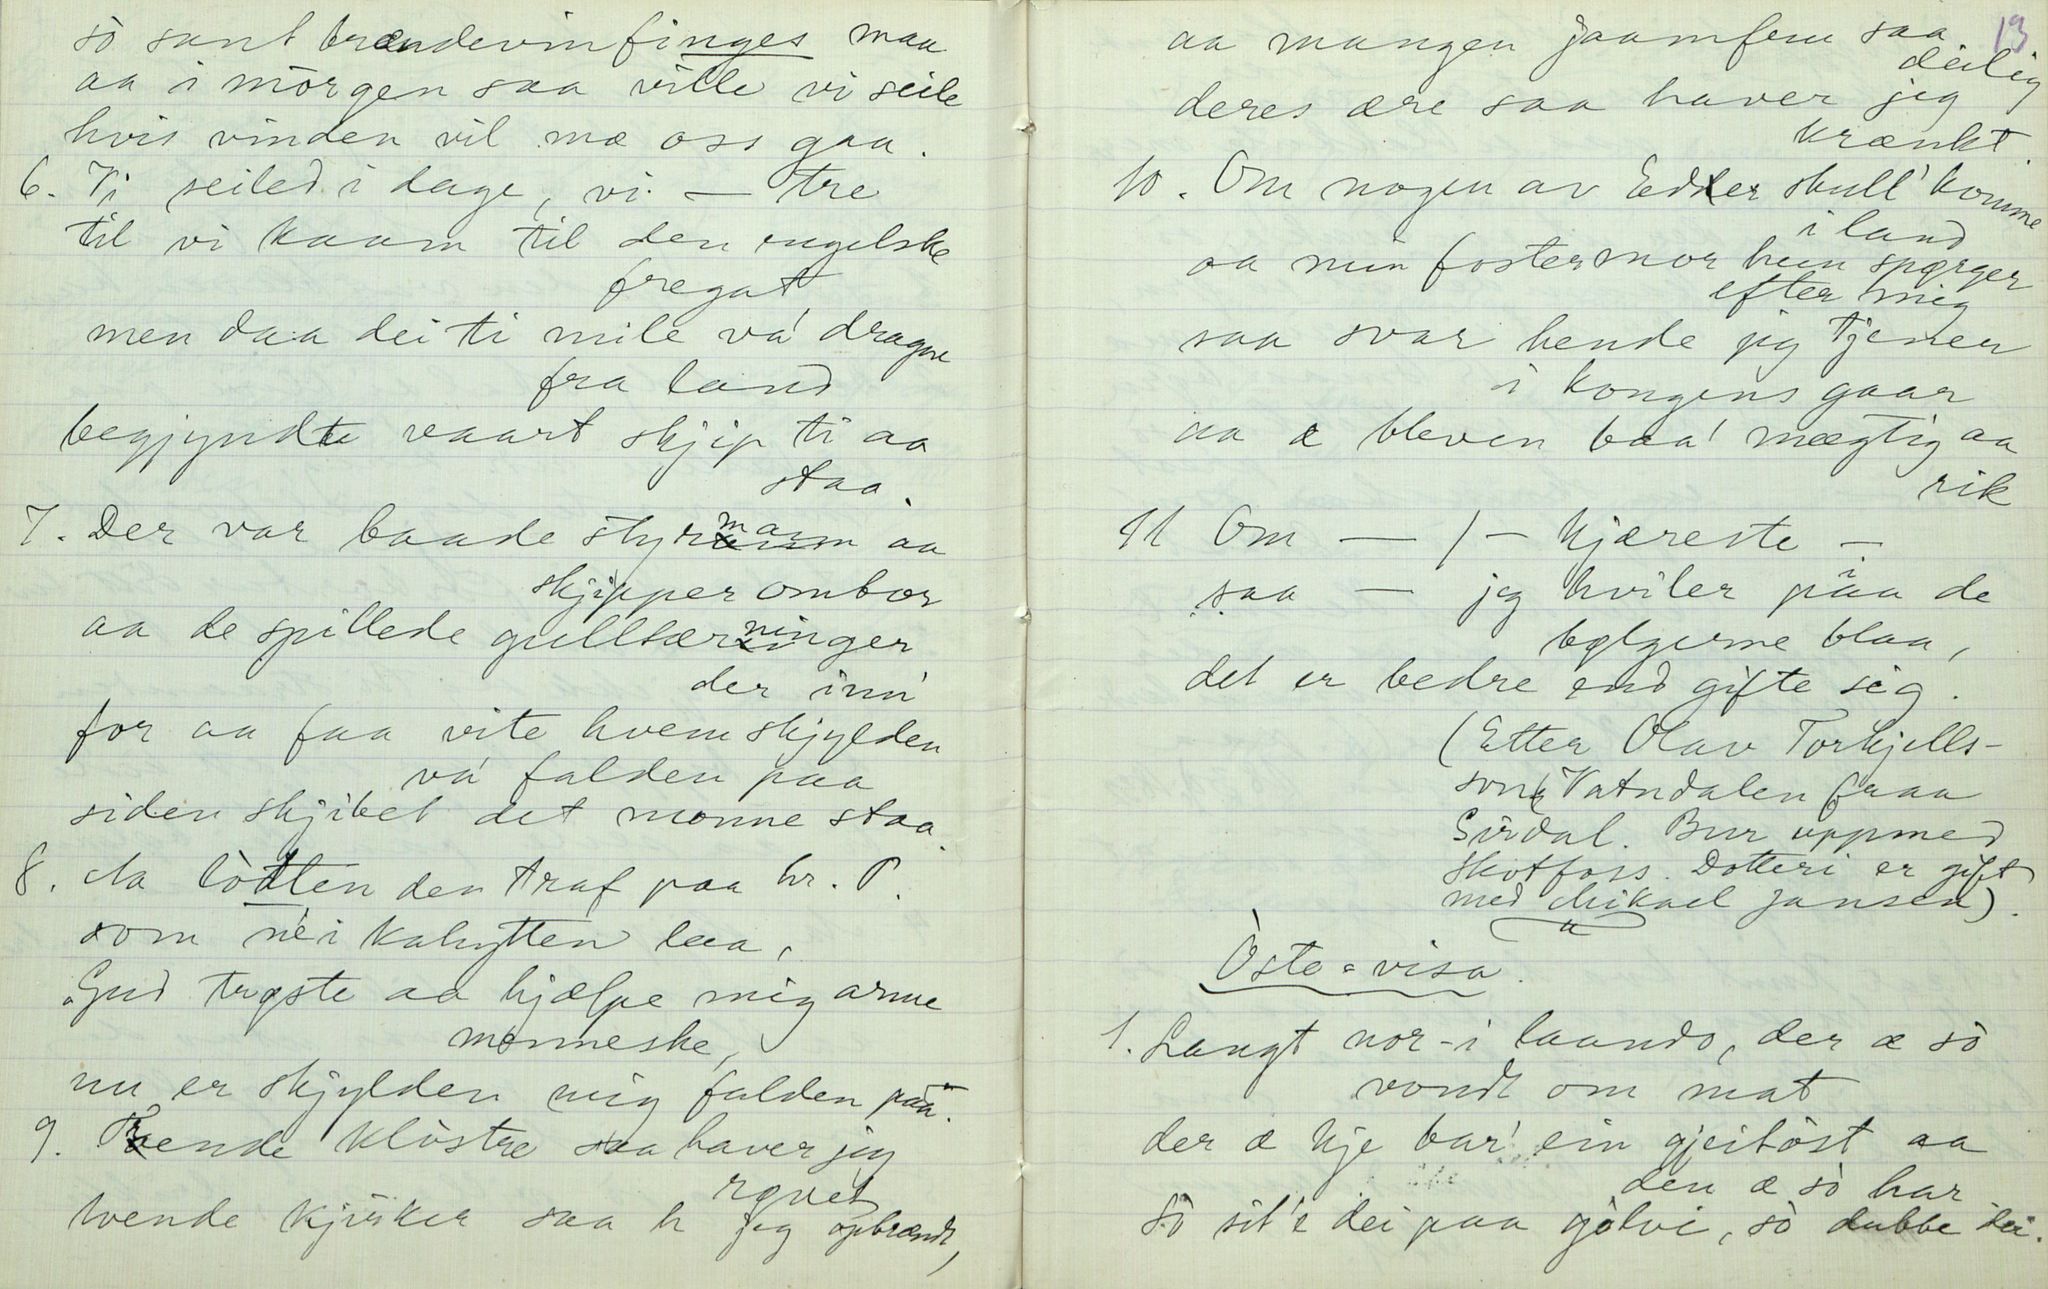 sò sant brændevin finges maa
aa i mòrgen saa ville vi seile
hvis vinden vil mæ oss gaa.
6. Vi seiled i dage, vi — tre
til vi kaam til den engelske
fregat
men daa dei ti mile va' dragne
fra land
begjyndte vaart skjip ti aa
staa.
7. Der var baade styrmann aa
skjipper ombor
aa de spillede gulltærninger
der inn'
for aa faa vite hvem skjylden
va' falden paa
siden skjibet det monne staa.
8. Aa lòdten den traf paa hr. P.
som ne' i kahytten laa,
"Gud trøste aa hjælpe mig arme
menneske,
nu er skjylden mig falden paa".
9. Tvende klòstre saa haver jeg
røvet
tvende kjirker saa h jeg opbrændt,
13
aa mangen jaamfru saa
deilig
deres ære saa haver jeg
krænkt.
10. Om nogen av Edder skull' komme
i land
aa min fostermor hun spørger
efter mig
saa svar hende jeg tjener
i kongens gaar
aa æ bleven baa' mægtig aa
rik
11 Om — / — kjæreste —
saa — jeg hviler i paa de
bølgerne blaa,
det er bedre end gifte sig.
(Etter Olav Torkjells-
son Vatndalen fraa
Sirdal. Bur uppmed
Skotfoss. Dotteri er gift
med Mikael Jansen).
Òste-visa.
1. Langt nor-i laando, der æ sò
vondt om mat
der æ kje bar' ein gjeitòst aa
den æ sò har
Sò sit'e dei paa gòlvi, sò dubbe dei.